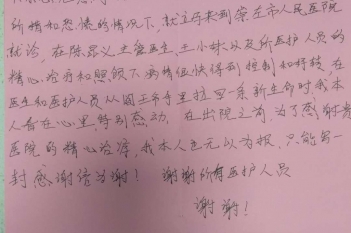 所措如恐慌的情况下，就立即来到崇左市人民医院
就诊，在陈显义主管医生、王小妹以及所医护人员的
精心治疗和照顾下病情很快得到控制和好转，在
医生和医护人员从阎王爷手里拉回一条新生命时我本
人看在心里，特别感动。在出院之前，为了感谢贵
医院的精心治疗，我本人也无以为报，只能写一
封感谢信为谢！谢谢所有医护人员
谢谢！